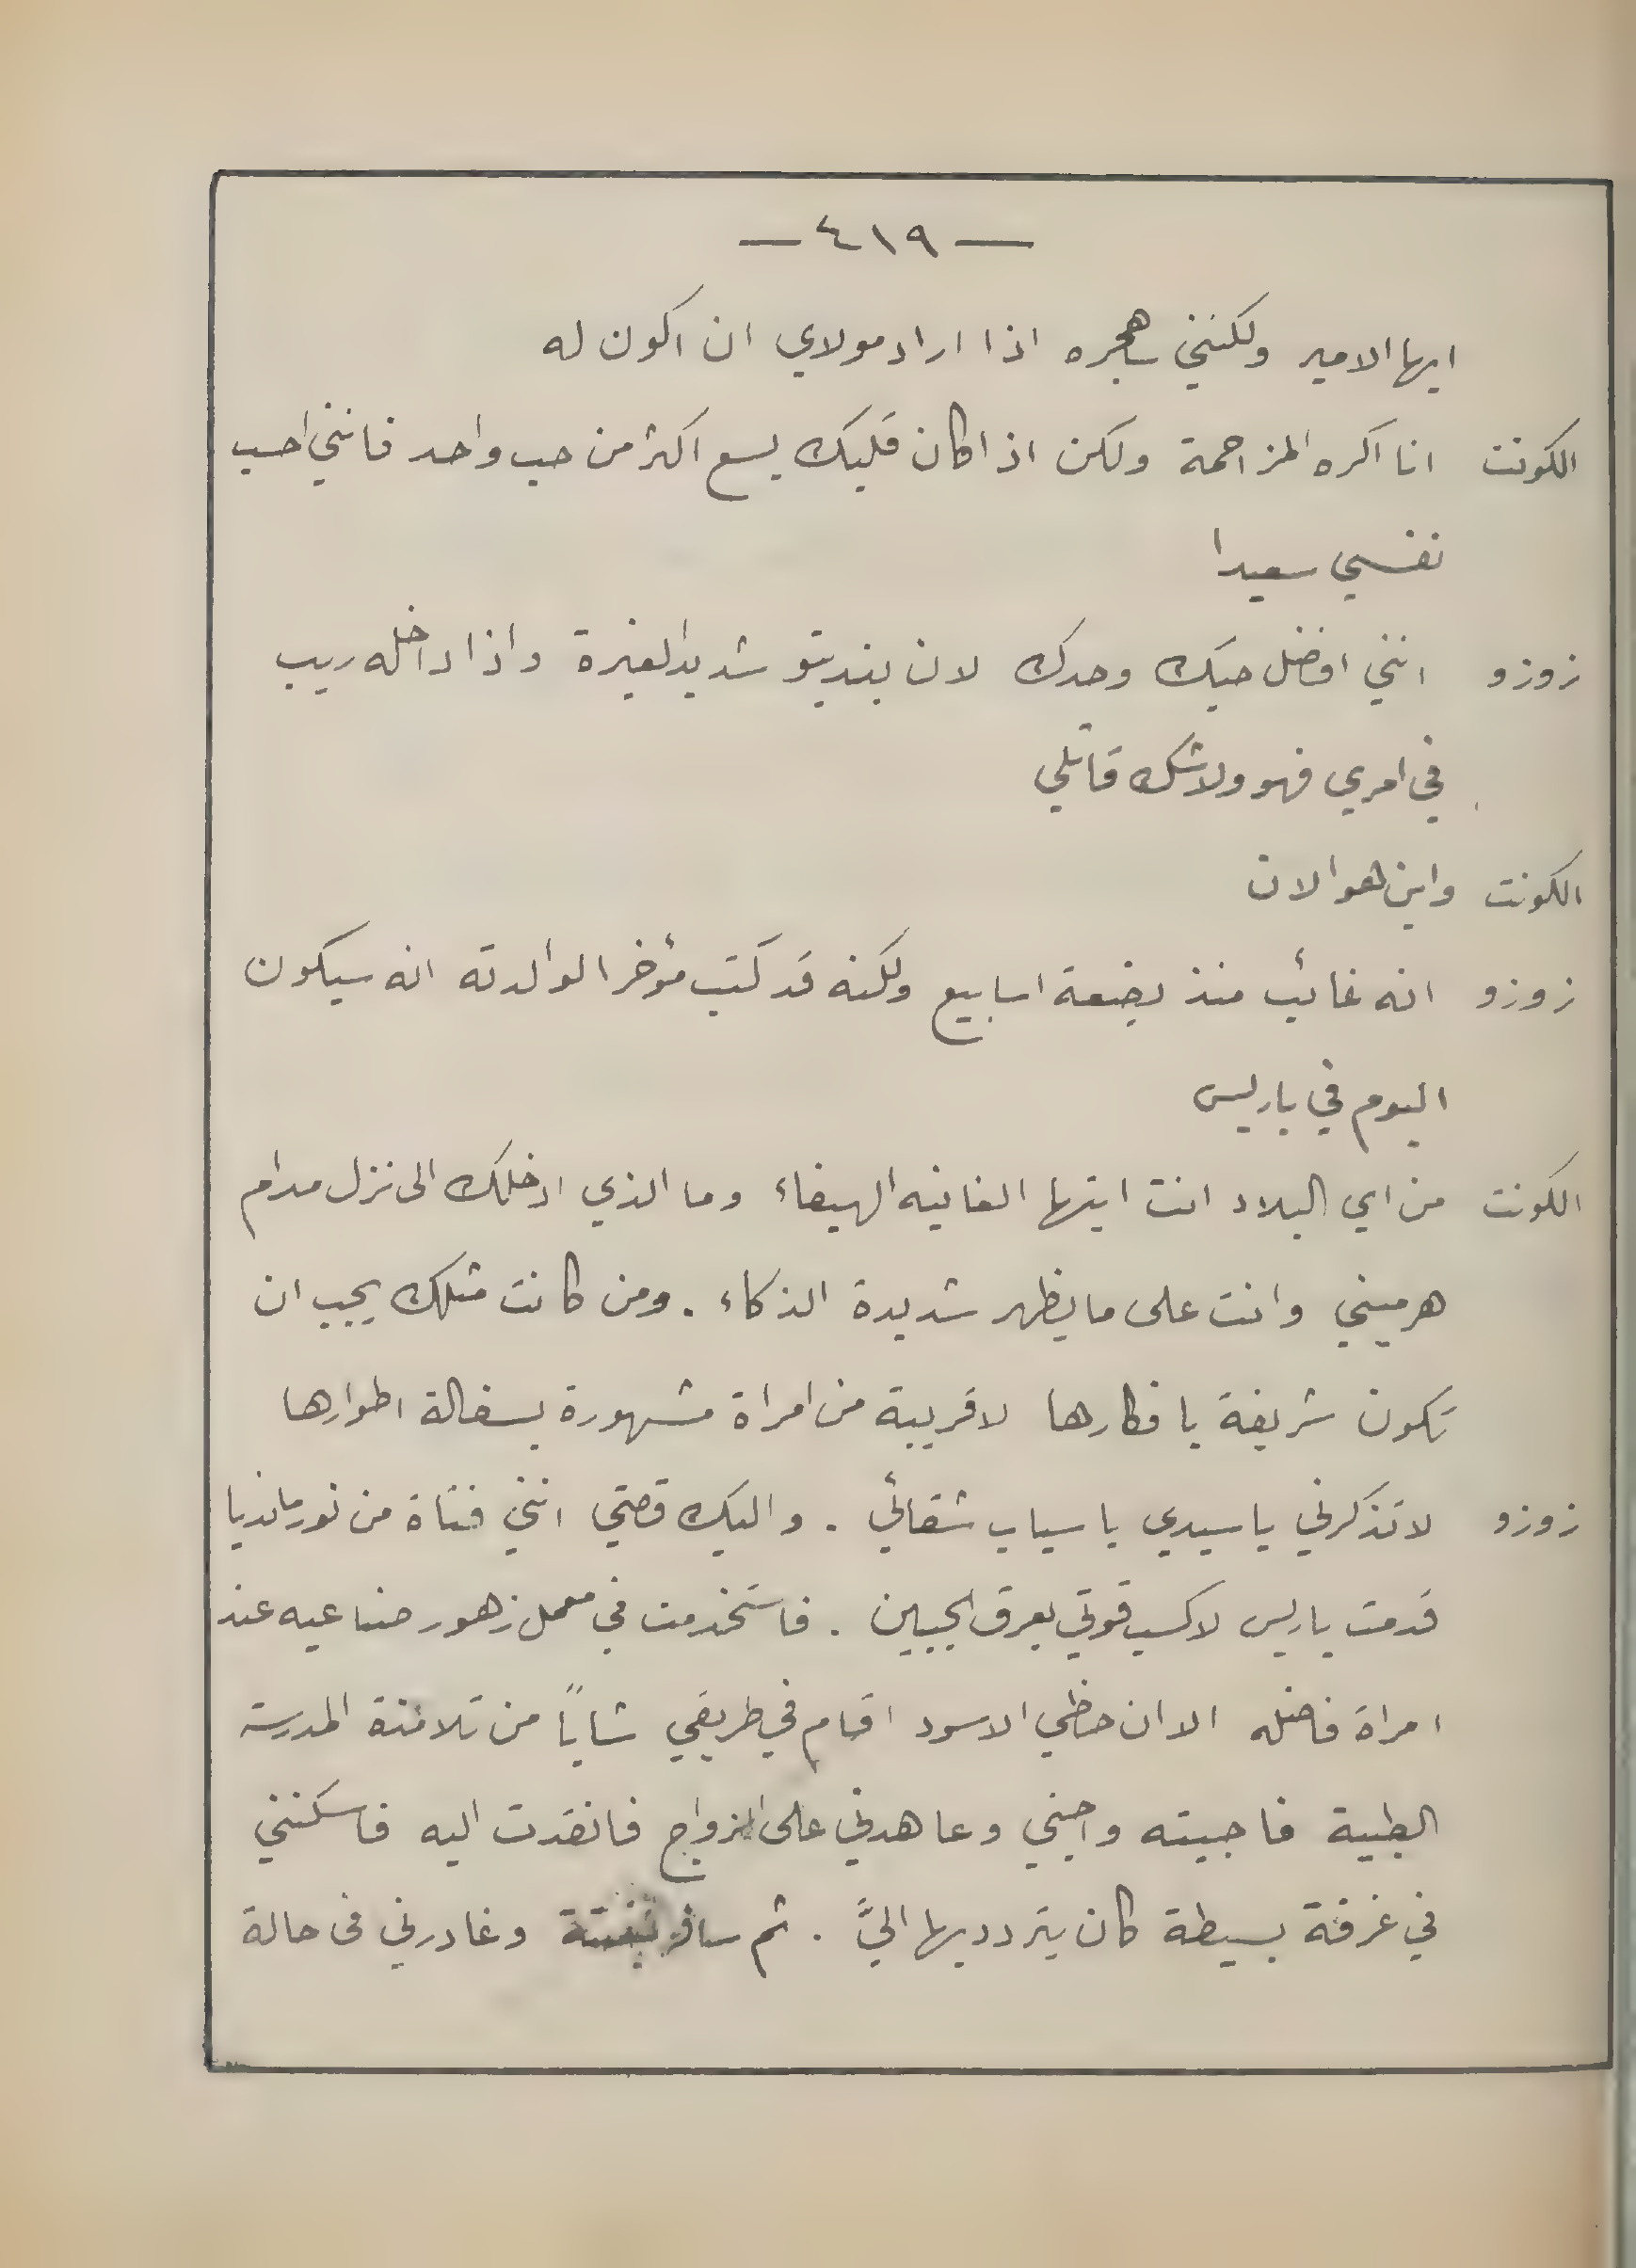 — ٤١٩ —
ايها الامير ولكنني ساهجره اذا اراد مولاي ان اكون له
الكونت انا اكره المزاحمة ولكن اذا كان قلبك يسع اكثر من حب واحد فانني احسب
نفسي سعيدا
زوزو انني افضل حبك وحدك لان بنديتو شديد الغيرة واذا داخله ريب
في امري فهو ولا شك قاتلي
الكونت واين هو الان
زوزو انه غائب منذ بضعة اسابيع ولكنه قد كتب مؤخرا لوالدته انه سيكون
اليوم في باريس
الكونت من اي البلاد انت ايتها الغانيه الهيفاء وما الذي ادخلك الى نزل مدام
هرميني وانت على ما يظهر شديدة الذكاء . ومن كانت مثلك يجب ان
تكون شريفة بافكارها لا قريبة من امراة مشهورة بسفالة اطوارها
زوزو لا تذكرني يا سيدي باسباب شقائي . واليك قصتي انني فتاة من نورمانديا
قدمت باريس لاكسب قوتي بعرق الجبين . فاستخدمت في معمل زهور صناعيه عند
امراة فاضله الا ان حظي الاسود اقام في طريقي شاباً من تلامذة المدرسة
الطبية فاحببته واحبني وعاهدني على الزواج فانقدت اليه فاسكنني
في غرفة بسيطة كان يتردد بها اليَّ . ثم سافر بغتة وغادرني في حالة